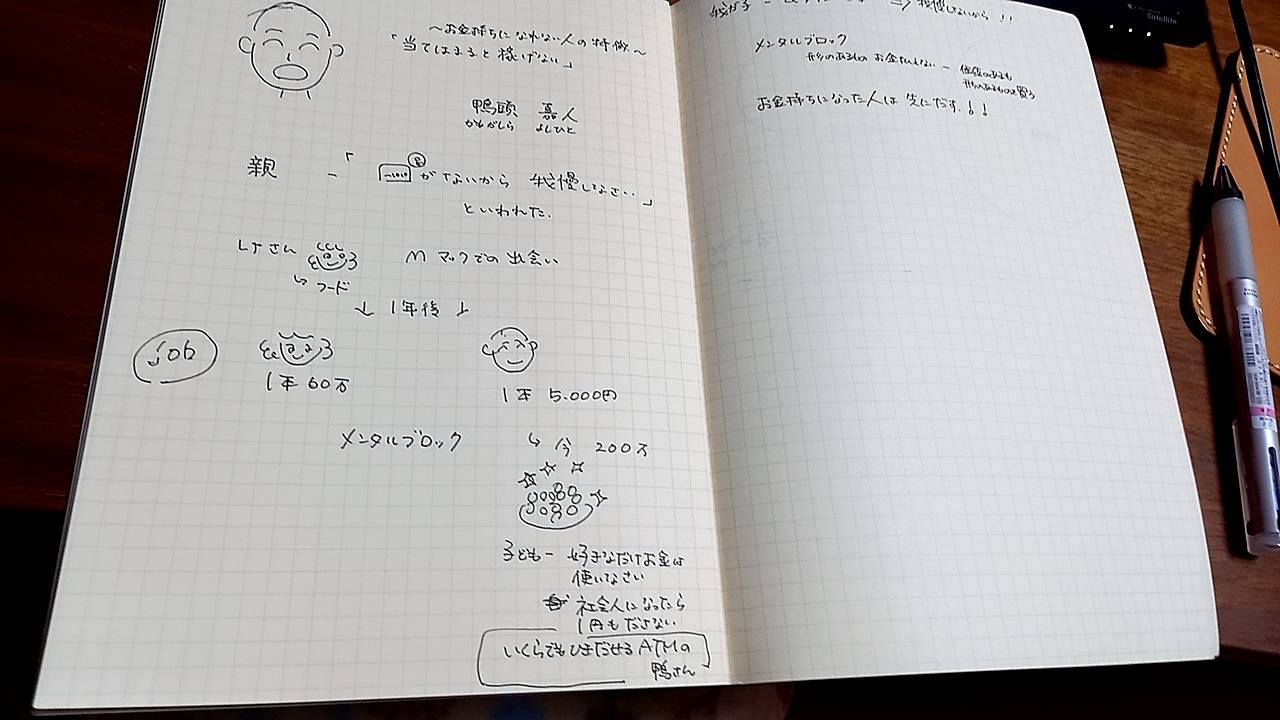 ～お金持ちになれない人の特徴～
「当てはまると稼げない」
鴨頭 嘉人
かもがしら よしひと
親 － 「 がないから 我慢しなさい。」
といわれた.
さん M マックでの出会い
↳ フード
↓ 1年後 ↓
job
1年 60万
1年 5.000円
メンタルブロック
↳ 今 200万
子ども－ 好きなだけお金は
使いなさい
社会人になったら
1円もださない
いくらでもひきだせるATMの
鴨さん
⇒ 我慢しないから!!
メンタルブロック
形のあるもの お金 －
形のあるものを買う
お金持ちになった人は 先にだす!!
Satellite